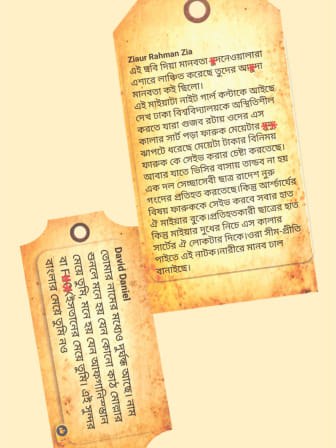 Ziaur Rahman Zia
এই ছবি দিয়া মানবতা
এশারে লাঞ্চিত করেছে তুদের
মানবতা কই ছিলো।
এই মাইয়াটা নাইট গার্ল কন্ঠাকে আইছে
দেখ ঢাকা বিশ্ববিদ্যালয়কে অস্থিতিশীল
করতে যারা গুজব রটায় ওদের এস
কালার সার্ট পড়া ফারুক মেয়েটার
ঝাপটে ধরেছে মেয়েটা টাকার বিনিময়
ফারুক কে সেইভ করার চেষ্টা করতেছে।
আবার যাতে ভিসির বাসায় তান্ডব না হয়
এক দল সেচ্ছাসেবী ছাত্র রাদেশ নুরু
গংদের প্রতিহত করতেছে।কিন্তু আশ্চার্যের
বিষয় ফারুককে সেইভ করবে সবার হাত
ঐ মাইয়ার বুকে।প্রতিহতকারী ছাত্রের হাত
কিন্তু মাইয়ার দুধের নিচে এস কালার
সার্টের ঐ লোকটার দিকে।ওরা সীম-প্রীতি
পাইতে এই নাটক।নারীরে মানব ঢাল
বানাইছে।
David Daniel
তোমার নামের মধ্যেও দুর্গন্ধ আছে। নাম
শুনলে মনে হয় যেন কোনো কাঠ মোল্লার
মেয়ে তুমি, মনে হয় যেন আফগানিস্তান
বা
মেয়ে তুমি। এই সুন্দর
বাংলার মেয়ে তুমি নও